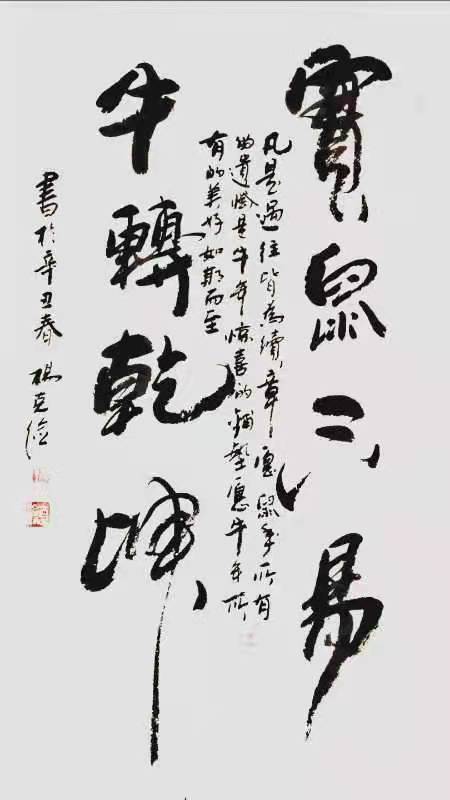 實鼠不易
凡是過往皆為續章愿鼠年所有
的遺憾是牛年惊喜的鋪墊愿牛年所
有的美好如期而至
牛轉乾坤
書於辛丑春 楊克儉